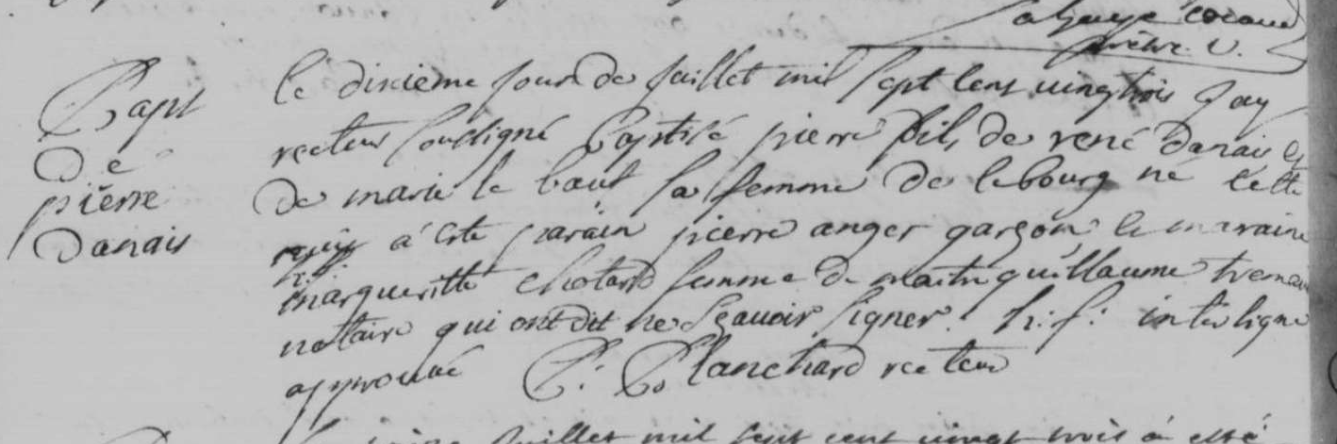 prêtre. v.
Bapt
de
pierre
danais
le dixieme jour de juillet mil sept cens vingtrois J'ay
recteur soussigné Baptisé pierre fils de rené danais et
de marie le baut sa femme de le bourg né cette
nuit à esté parain pierre anger garçon, et maraine
margueritte chotard femme de maitre guillaume
nottaire qui ont dit ne sçauoir signer. h: f: interligne
approuué P: Blanchard recteur
juillet mil sept cent vingt trois à esté